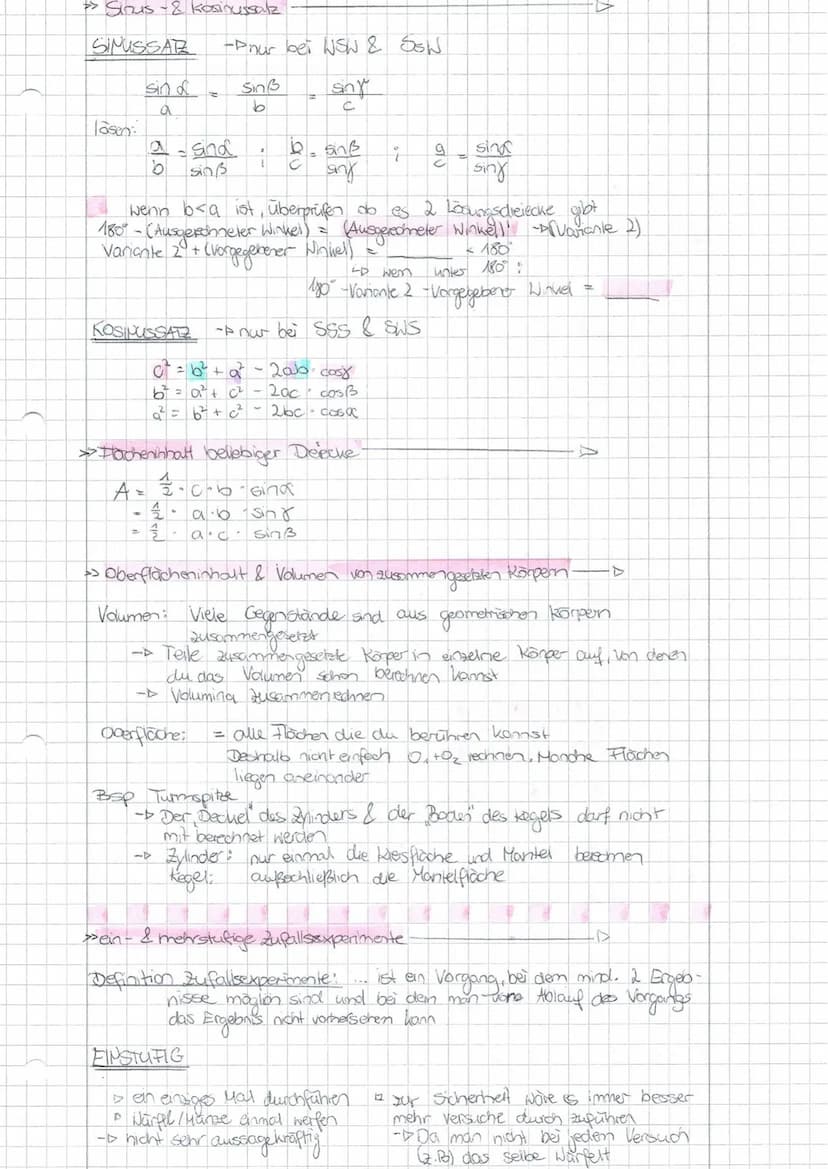 >> Sinus- & Kosinussatz
SINUSSATZ -> nur bei WSW & SSW
sin α / a = sin β / b = sin γ / c
lösen:
a/b = sin α / sin β ; b/c = sin β / sin γ ; a/c = sin α / sin γ
wenn b<a ist, überprüfen ob es 2 Lösungsdreiecke gibt
180° - (Ausgerechneter Winkel) = (Ausgerechneter Winkel)' -> (Variante 2)
Variante 2 + (Vorgegebener Winkel) = ____ < 180°
↳ wenn unter 180°:
180° - Variante 2 - Vorgegebener Winkel = ____
KOSINUSSATZ -> nur bei SSS & SWS
c² = b² + a² - 2ab · cos γ
b² = a² + c² - 2ac · cos β
a² = b² + c² - 2bc · cos α
>> Flächeninhalt beliebiger Dreiecke
A = 1/2 · c · b · sin α
= 1/2 · a · b · sin γ
= 1/2 · a · c · sin β
>> Oberflächeninhalt & Volumen von zusammengesetzten Körpern
Volumen: Viele Gegenstände sind aus geometrischen Körpern
zusammengesetzt
-> Teile zusammengesetzte Körper in einzelne Körper auf, von denen
du das Volumen schon berechnen kannst
-> Volumina zusammenrechnen
Oberfläche: = alle Flächen die du berühren kannst
Deshalb nicht einfach O₁+O₂ rechnen, Manche Flächen
liegen aneinander
Bsp Turmspitze
-> Der "Deckel" des Zylinders & der "Boden" des Kegels darf nicht
mit berechnet werden
-> Zylinder: nur einmal die Kreisfläche und Mantel berechnen
Kegel: außschließlich die Mantelfläche
>> ein- & mehrstufige Zufallsexperimente
Definition Zufallsexperimente: ... ist ein Vorgang, bei dem mind. 2 Ergeb-
nisse möglich sind und bei dem man vorm Ablauf des Vorgangs
das Ergebnis nicht vorhersehen kann
EINSTUFIG
▷ ein einziges Mal durchführen
▷ Würfel/Münze einmal werfen
-> nicht sehr aussagekräftig
zur Sicherheit wäre es immer besser
mehr Versuche durch zuführen
-> Da man nicht bei jedem Versuch
(z.B.) das selbe Würfelt